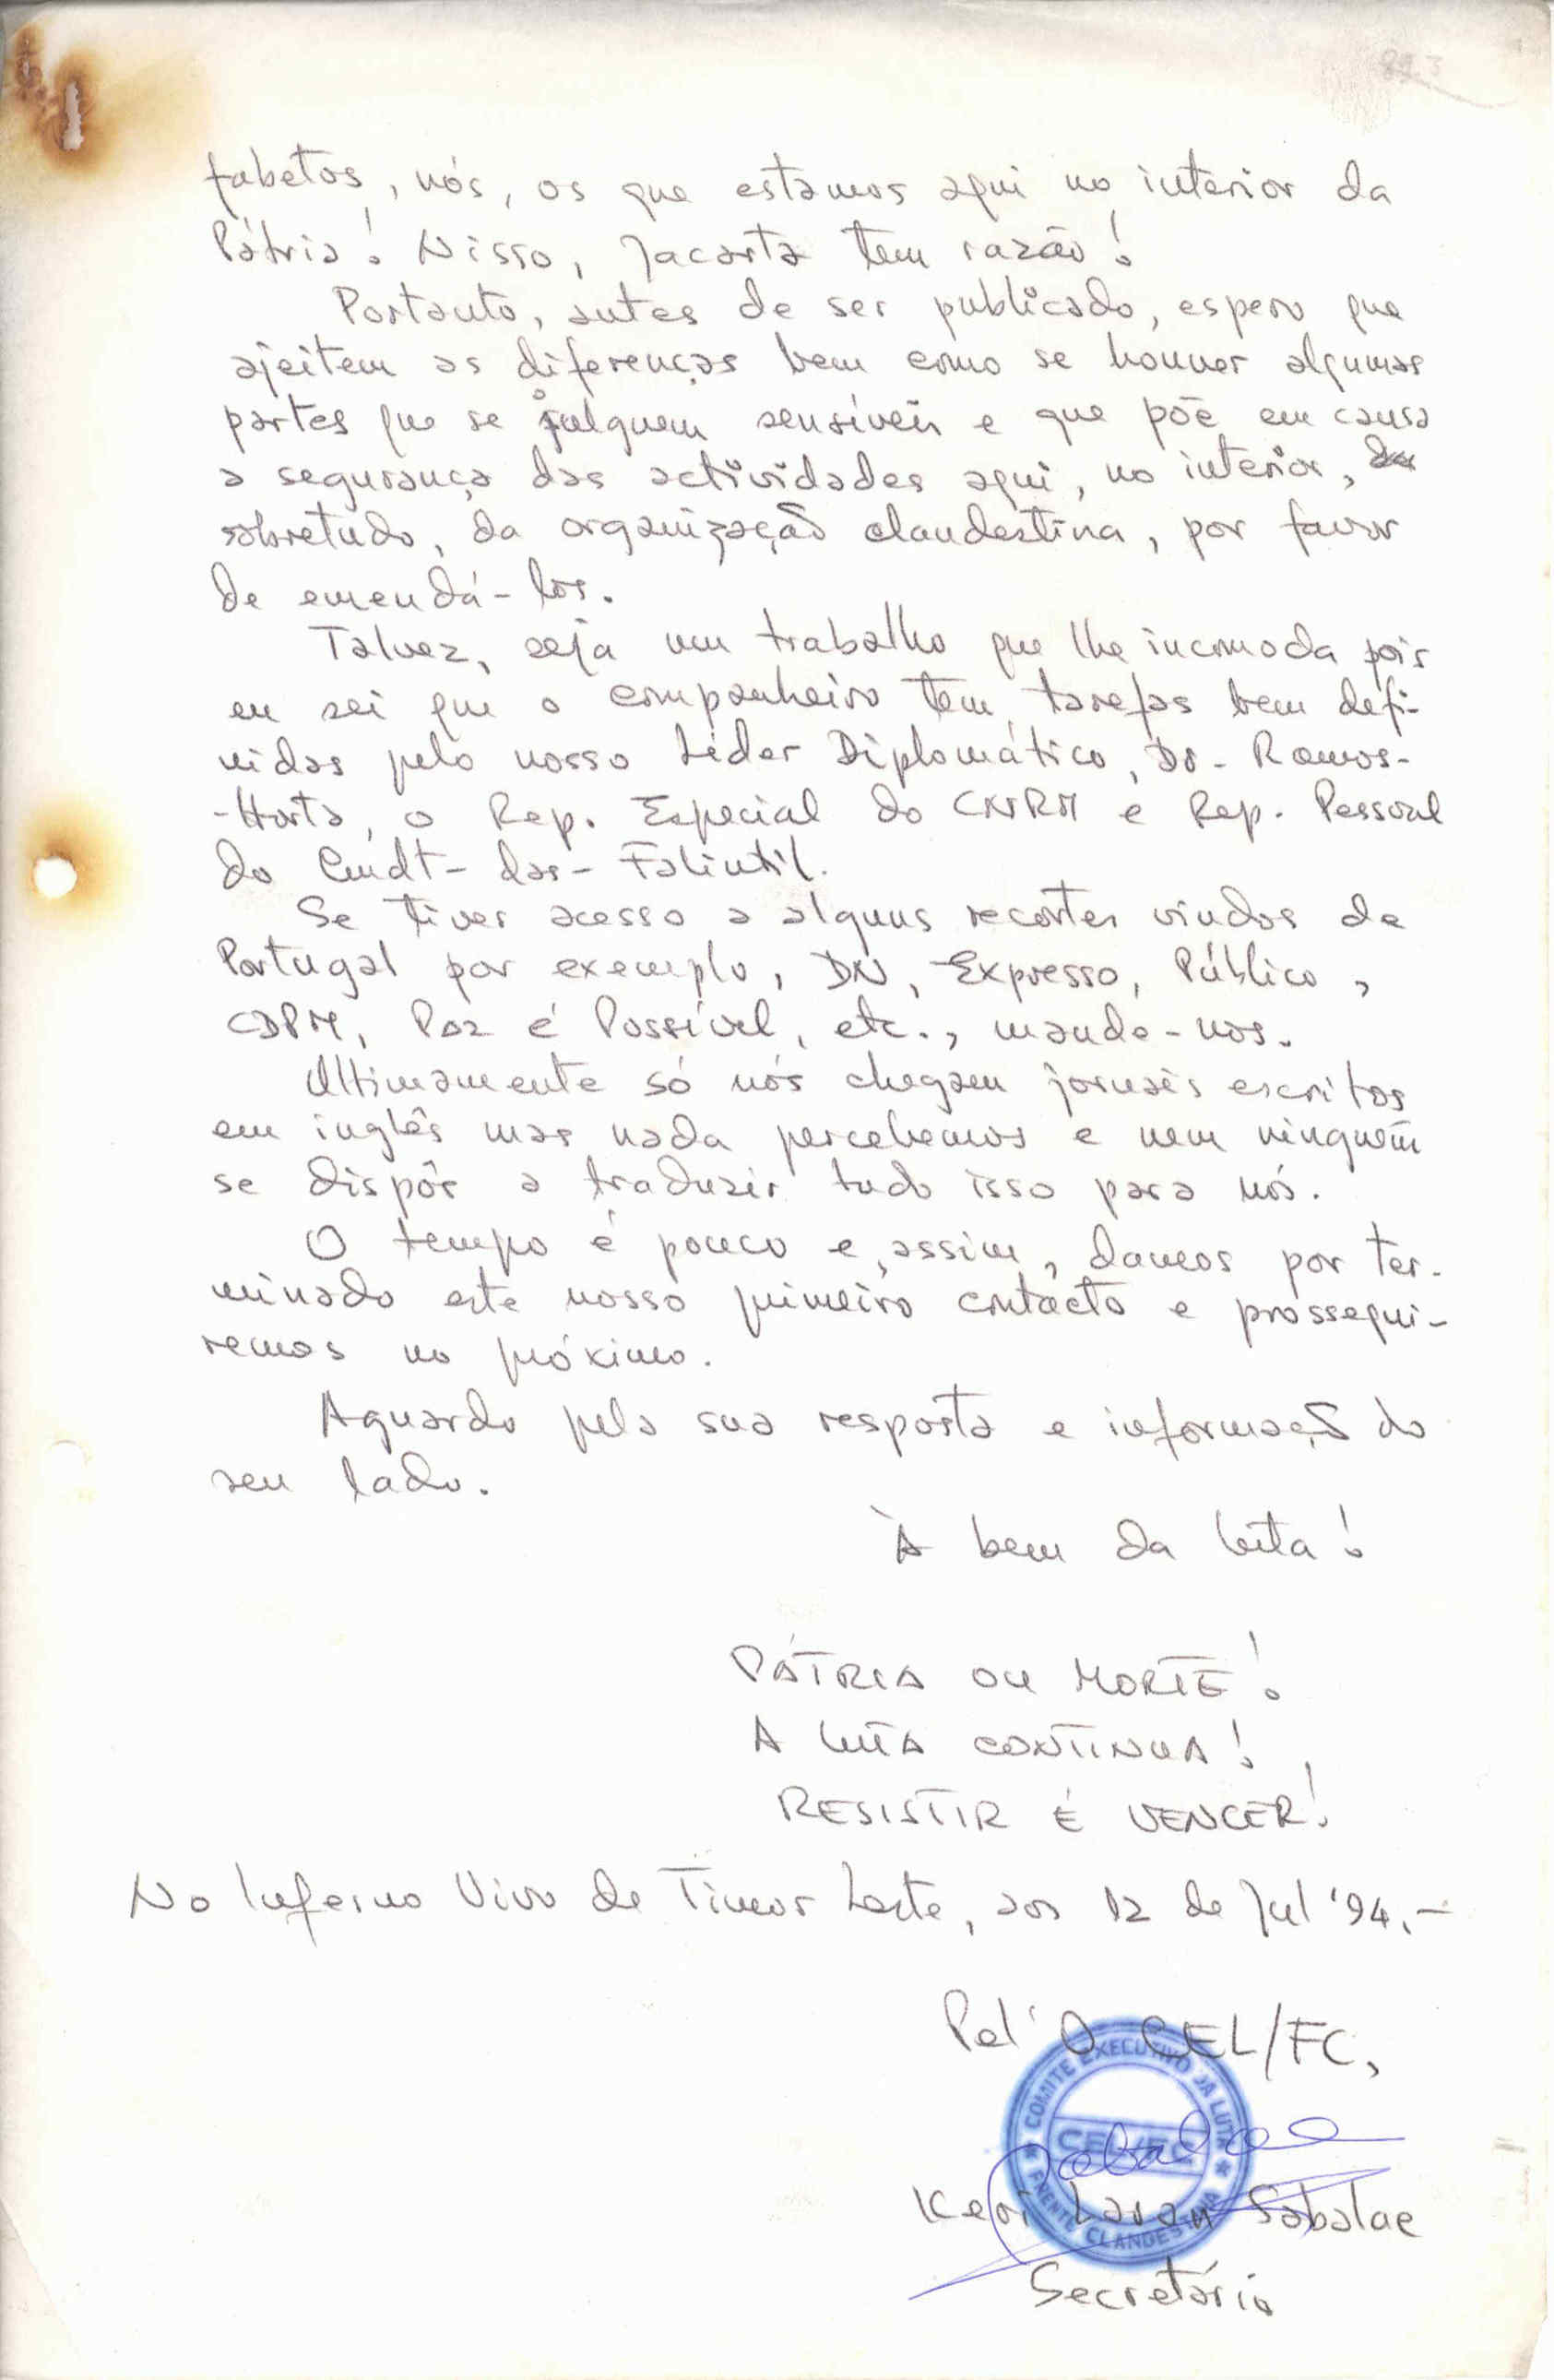 fabetos, nós, os que estamos aqui no interior da
Pátria! Nisso, Jacarta tem razão!
Portanto, antes de ser publicado, espero que
ajeitem as diferenças bem como se houver algumas
partes que se julguem sensíveis e que põe em causa
a segurança das actividades aqui, no interior,
sobretudo, da organização clandestina, por favor
de emendá-los.
Talvez, seja um trabalho que lhe incomoda pois
eu sei que o companheiro tem tarefas bem defi-
nidas pelo nosso Líder Diplomático, Dr. Ramos-
-Horta, o Rep. Especial do CNRM e Rep. Pessoal
do Cmdt-das-Falintil.
Se tiver acesso a alguns recortes vindos de
Portugal por exemplo, DN, Expresso, Público,
CDPM, Paz é Possível, etc., mande-nos.
Ultimamente só nós chegam jornais escritos
em inglês mas nada percebemos e nem ninguém
se dispôs a traduzir tudo isso para nós.
O tempo é pouco e, assim, damos por ter-
minado este nosso primeiro contacto e prossegui-
remos no próximo.
Aguardo pela sua resposta e informação do
seu lado.
À bem da luta!
PÁTRIA OU MORTE!
A LUTA CONTINUA!
RESISTIR É VENCER!
No Inferno Vivo de Timor Leste, aos 12 de Jul '94.-
Pel' O CEL/FC,
COMITE EXECUTIVO DA LUTA
CEL/FC
FRENTE CLANDESTINA
Sabalae
Keri Laran Sabalae
Secretário